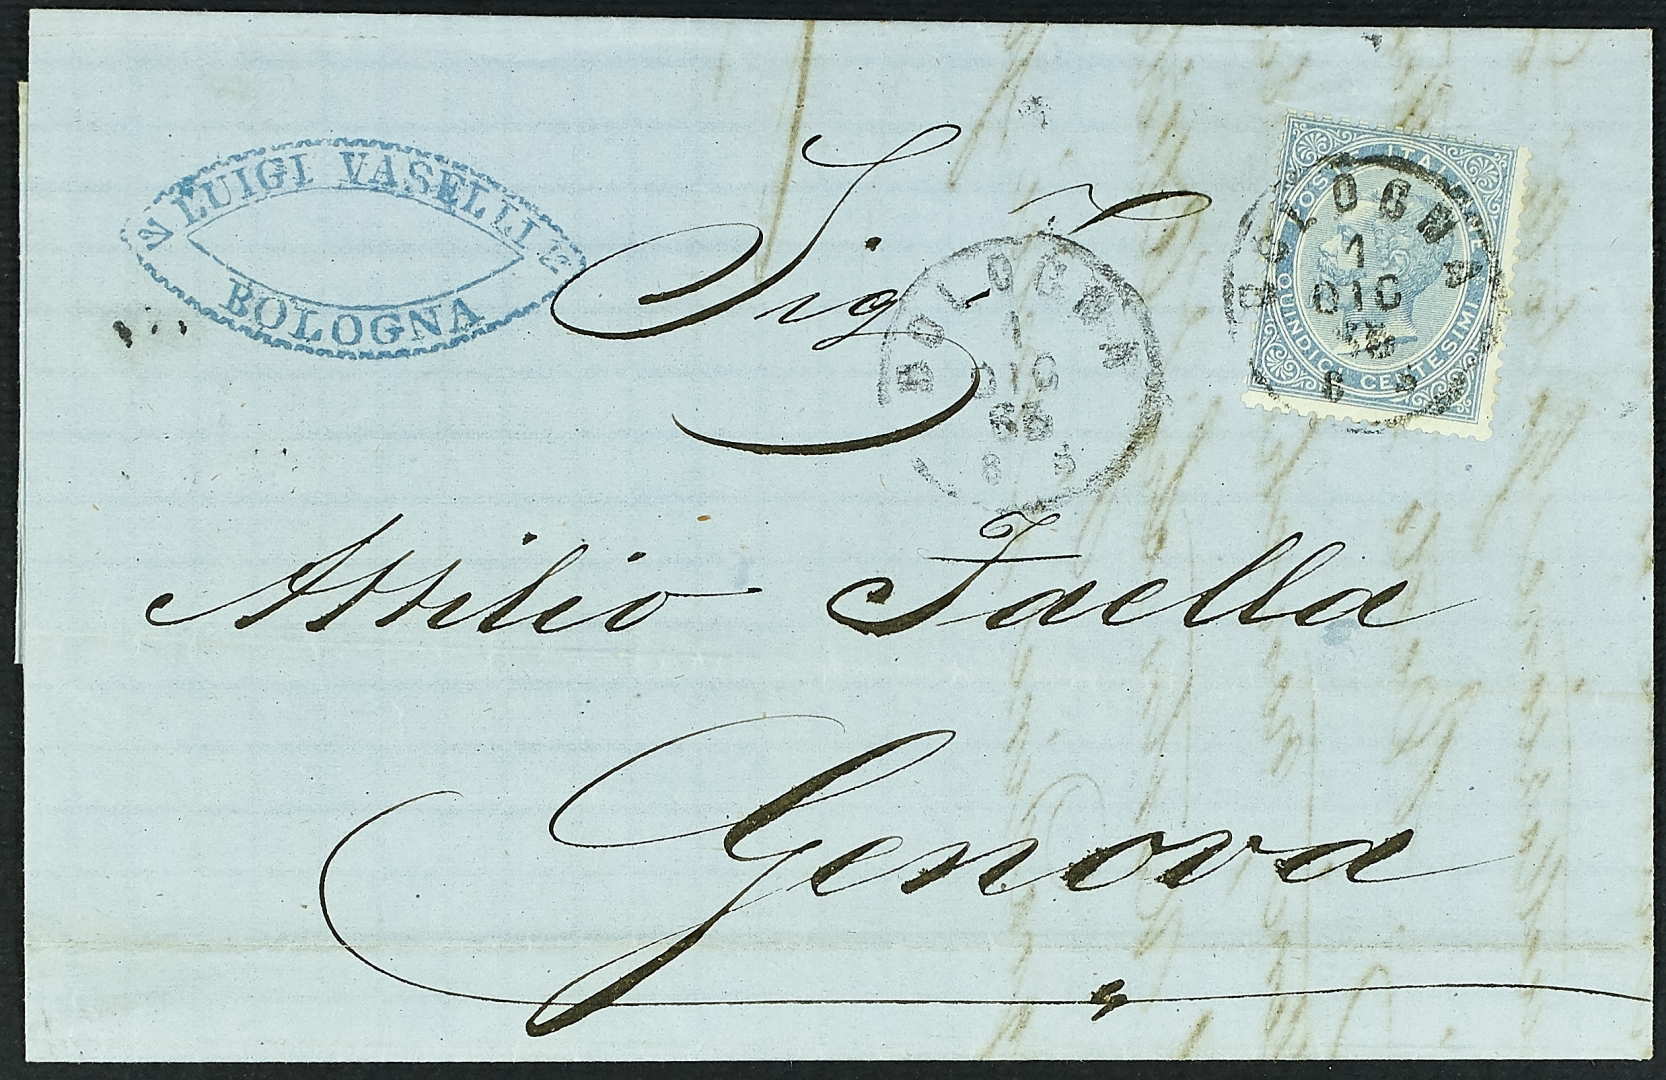 LUIGI VASELLI
BOLOGNA
Sig.r
BOLOGNA
1
DIC
65
8 S
POSTE ITALIANE
QUINDICI CENTESIMI
BOLOGNA
1
DIC
65
8 S
Attilio Faella
Genova